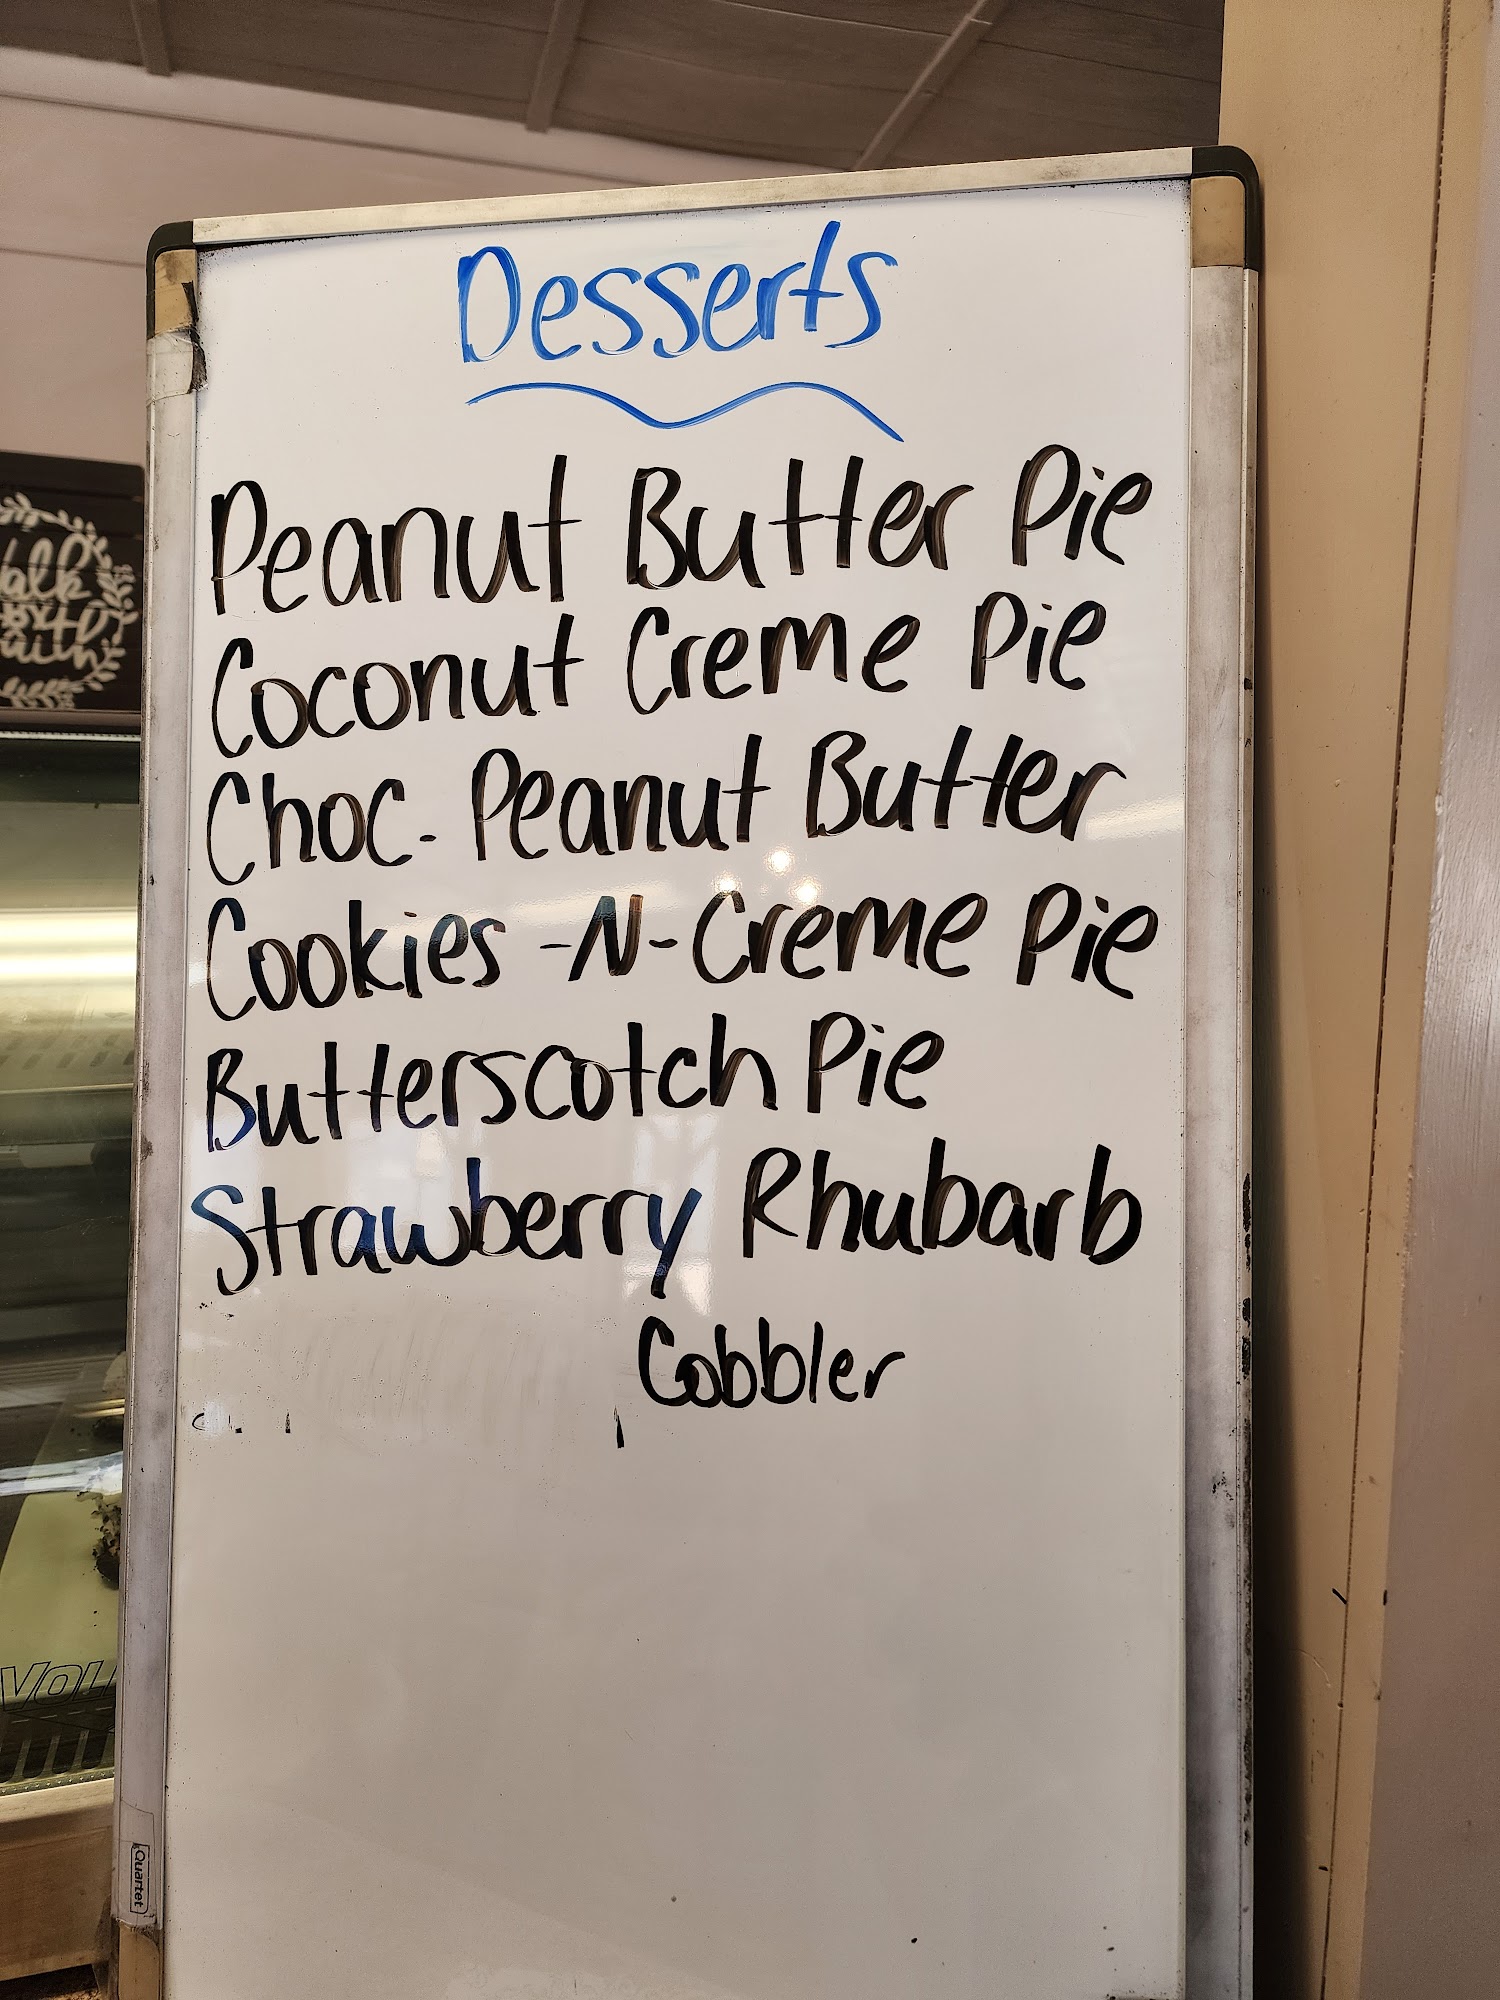 Desserts
Peanut Butter Pie
Coconut Creme Pie
Choc. Peanut Butter
Cookies -N- Creme Pie
Butterscotch Pie
Strawberry Rhubarb
Cobbler
Quartet